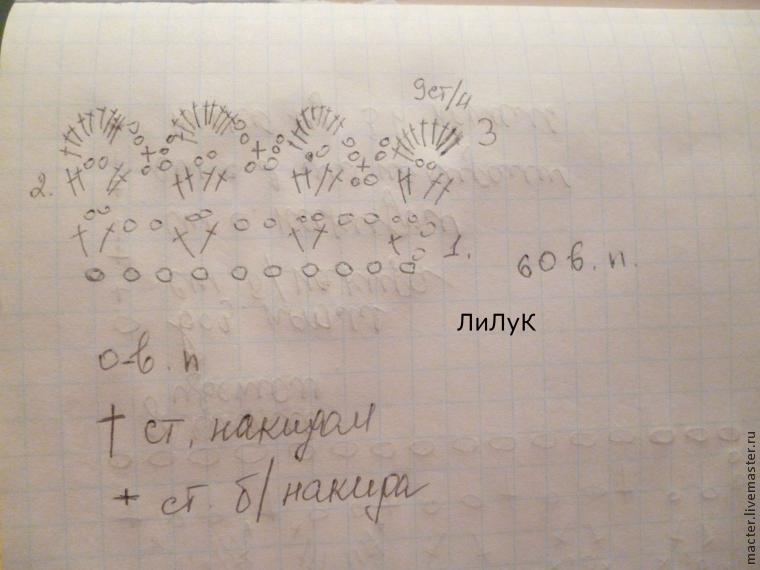 9ст/н
3
2.
1.
60 в.п.
ЛиЛуК
о-в.п
† ст, накидом
+ ст. б/накида
master.livemaster.ru